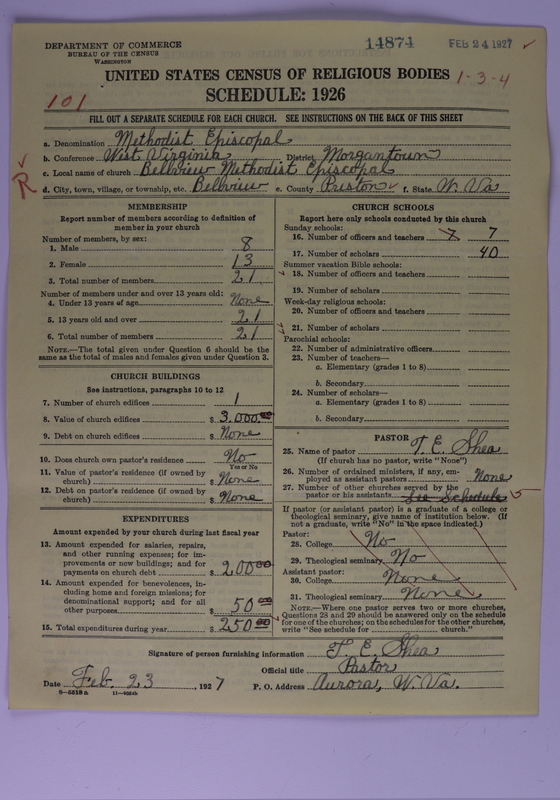 DEPARTMENT OF COMMERCE
BUREAU OF THE CENSUS
WASHINGTON
14874
FEB 24 1927
UNITED STATES CENSUS OF RELIGIOUS BODIES
1-3-4
101
SCHEDULE: 1926
FILL OUT A SEPARATE SCHEDULE FOR EACH CHURCH. SEE INSTRUCTIONS ON THE BACK OF THIS SHEET
a. Denomination Methodist Episcopal
b. Conference West Virginia District Morgantown
c. Local name of church Bellview Methodist Episcopal
R
d. City, town, village, or township, etc. Bellview e. County Preston f. State W. Va
MEMBERSHIP
Report number of members according to definition of
member in your church
Number of members, by sex:
1. Male 8
2. Female 13
3. Total number of members 21
Number of members under and over 13 years old:
4. Under 13 years of age None
5. 13 years old and over 21
6. Total number of members 21
NOTE.—The total given under Question 6 should be the
same as the total of males and females given under Question 3.
CHURCH BUILDINGS
See instructions, paragraphs 10 to 12
7. Number of church edifices 1
8. Value of church edifices $ 3,000.00
9. Debt on church edifices $ None
10. Does church own pastor's residence No
Yes or No
11. Value of pastor's residence (if owned by
church) $ None
12. Debt on pastor's residence (if owned by
church) $ None
EXPENDITURES
Amount expended by your church during last fiscal year
13. Amount expended for salaries, repairs,
and other running expenses; for im-
provements or new buildings; and for
payments on church debt $ 200.00
14. Amount expended for benevolences, in-
cluding home and foreign missions; for
denominational support; and for all
other purposes $ 50.00
15. Total expenditures during year $ 250.00
CHURCH SCHOOLS
Report here only schools conducted by this church
Sunday schools:
16. Number of officers and teachers 7 7
17. Number of scholars 40
Summer vacation Bible schools:
18. Number of officers and teachers
19. Number of scholars
Week-day religious schools:
20. Number of officers and teachers
21. Number of scholars
Parochial schools:
22. Number of administrative officers
23. Number of teachers—
a. Elementary (grades 1 to 8)
b. Secondary
24. Number of scholars—
a. Elementary (grades 1 to 8)
b. Secondary
PASTOR
25. Name of pastor T. E. Shea
(If church has no pastor, write "None")
26. Number of ordained ministers, if any, em-
ployed as assistant pastors None
27. Number of other churches served by the
pastor or his assistants See Schedule
If pastor (or assistant pastor) is a graduate of a college or
theological seminary, give name of institution below. (If
not a graduate, write "No" in the space indicated.)
Pastor:
28. College No
29. Theological seminary No
Assistant pastor:
30. College None
31. Theological seminary None
NOTE.—Where one pastor serves two or more churches,
Questions 28 and 29 should be answered only on the schedule
for one of the churches; on the schedules for the other churches,
write "See schedule for church."
Signature of person furnishing information T. E. Shea
Official title Pastor
Date Feb. 23, 1927 P. O. Address Aurora, W. Va.